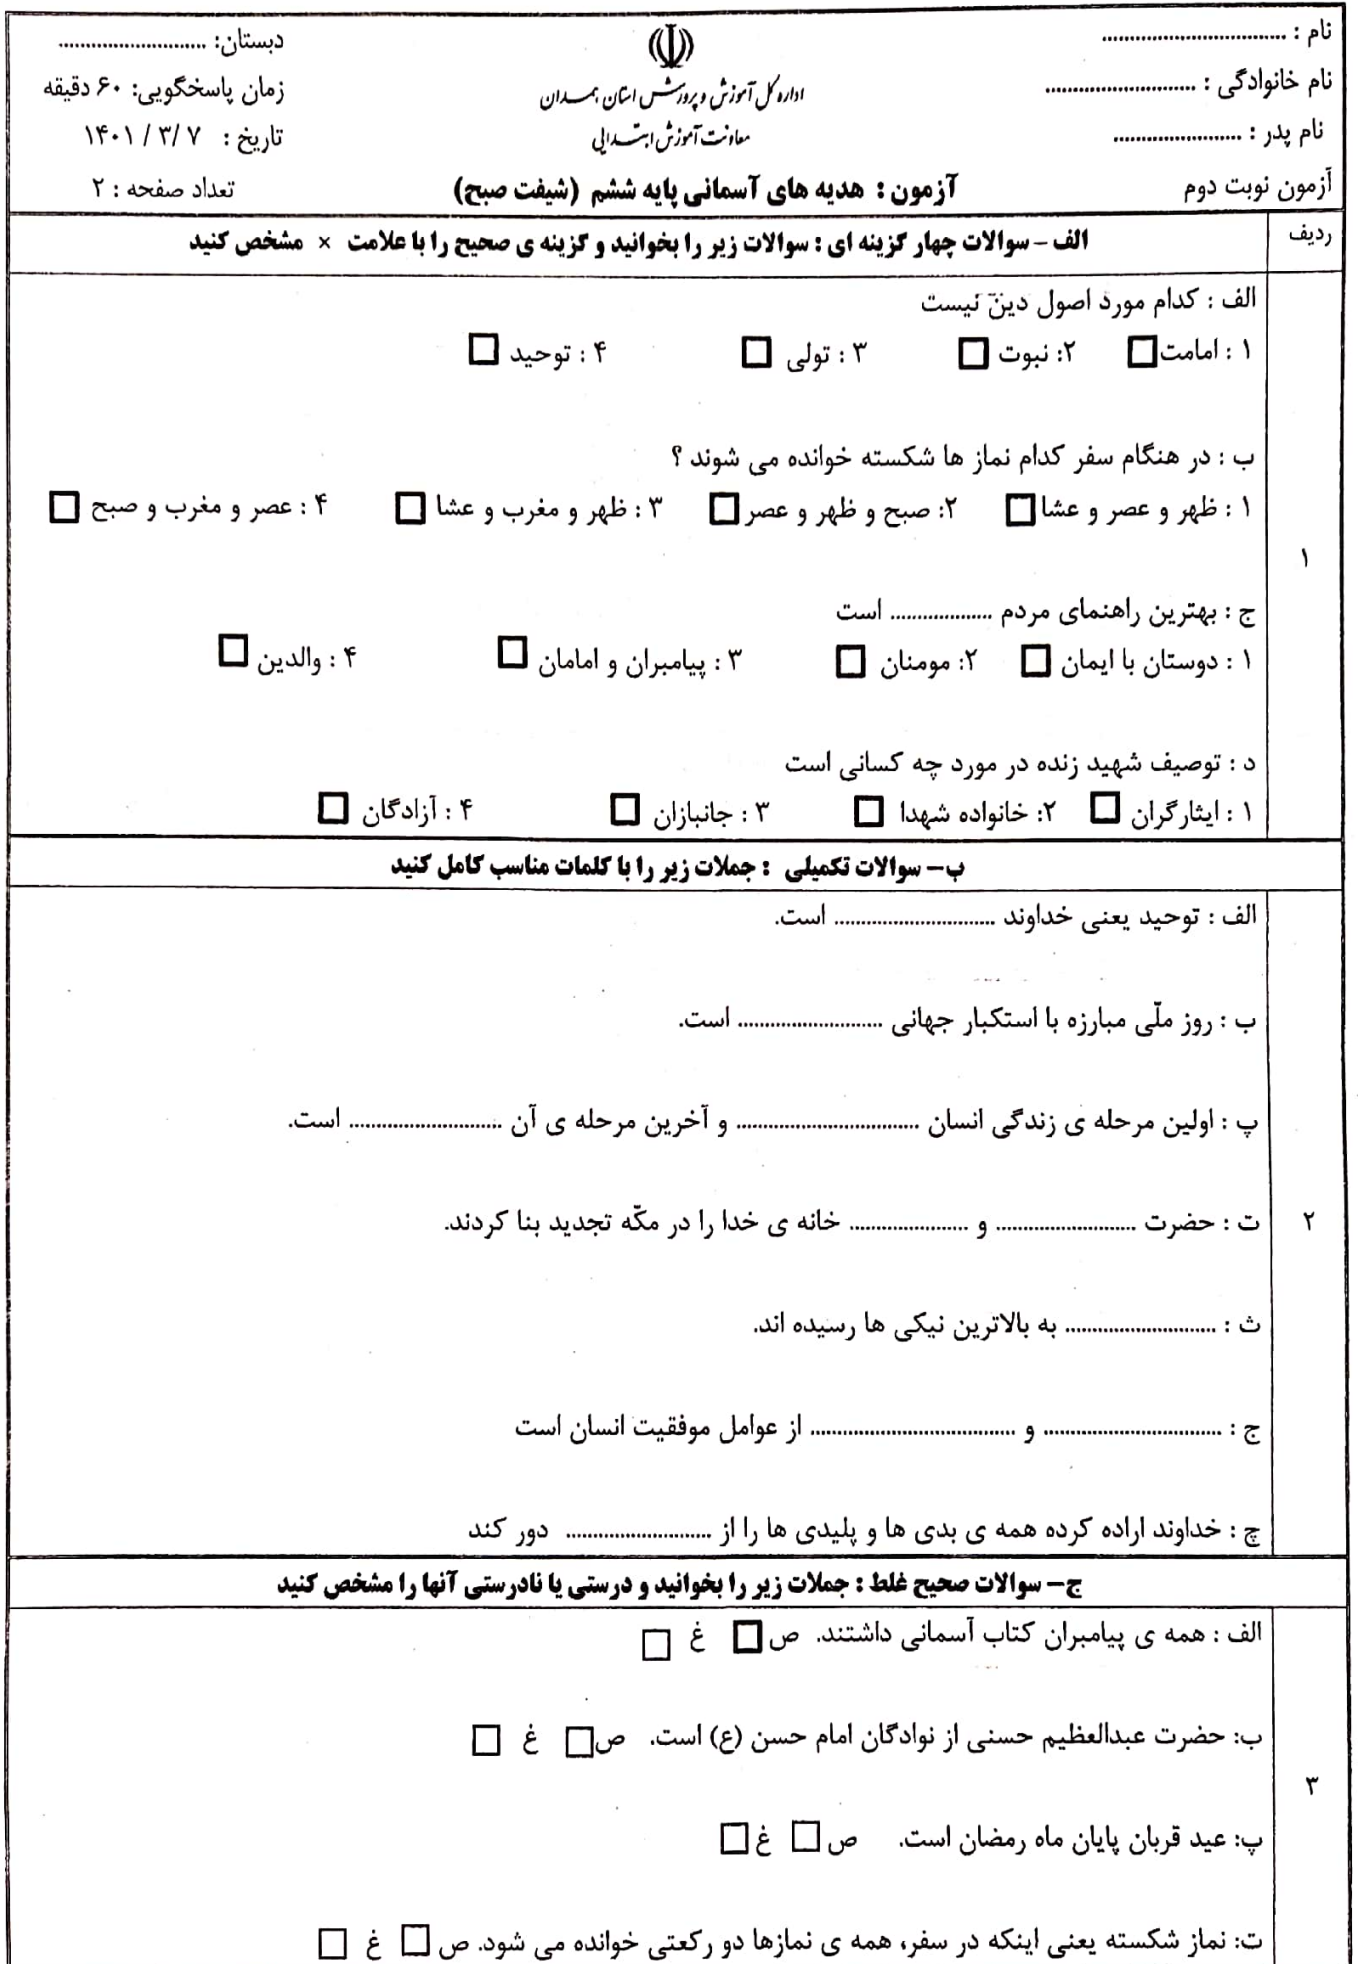 نام : ..................................
نام خانوادگی : ............................
نام پدر : ........................
آزمون نوبت دوم
اداره کل آموزش و پرورش استان همدان
معاونت آموزش ابتدایی
آزمون : هدیه های آسمانی پایه ششم (شیفت صبح)
دبستان: ............................
زمان پاسخگویی: ۶۰ دقیقه
تاریخ : ۷ /۳ / ۱۴۰۱
تعداد صفحه : ۲
ردیف
الف – سوالات چهار گزینه ای : سوالات زیر را بخوانید و گزینه ی صحیح را با علامت × مشخص کنید
۱
الف : کدام مورد اصول دین نیست
۱ : امامت □ ۲: نبوت □ ۳ : تولی □ ۴ : توحید □
ب : در هنگام سفر کدام نماز ها شکسته خوانده می شوند ؟
۱ : ظهر و عصر و عشا □ ۲: صبح و ظهر و عصر □ ۳ : ظهر و مغرب و عشا □ ۴ : عصر و مغرب و صبح □
ج : بهترین راهنمای مردم ................... است
۱ : دوستان با ایمان □ ۲: مومنان □ ۳ : پیامبران و امامان □ ۴ : والدین □
د : توصیف شهید زنده در مورد چه کسانی است
۱ : ایثارگران □ ۲: خانواده شهدا □ ۳ : جانبازان □ ۴ : آزادگان □
ب – سوالات تکمیلی : جملات زیر را با کلمات مناسب کامل کنید
۲
الف : توحید یعنی خداوند .............................. است.
ب : روز ملّی مبارزه با استکبار جهانی ........................... است.
پ : اولین مرحله ی زندگی انسان .................................. و آخرین مرحله ی آن ............................ است.
ت : حضرت .......................... و ...................... خانه ی خدا را در مکّه تجدید بنا کردند.
ث : ............................ به بالاترین نیکی ها رسیده اند.
ج : ................................. و ...................................... از عوامل موفقیت انسان است
چ : خداوند اراده کرده همه ی بدی ها و پلیدی ها را از ........................... دور کند
ج – سوالات صحیح غلط : جملات زیر را بخوانید و درستی یا نادرستی آنها را مشخص کنید
۳
الف : همه ی پیامبران کتاب آسمانی داشتند. ص □ غ □
ب: حضرت عبدالعظیم حسنی از نوادگان امام حسن (ع) است. ص □ غ □
پ: عید قربان پایان ماه رمضان است. ص □ غ □
ت: نماز شکسته یعنی اینکه در سفر، همه ی نمازها دو رکعتی خوانده می شود. ص □ غ □